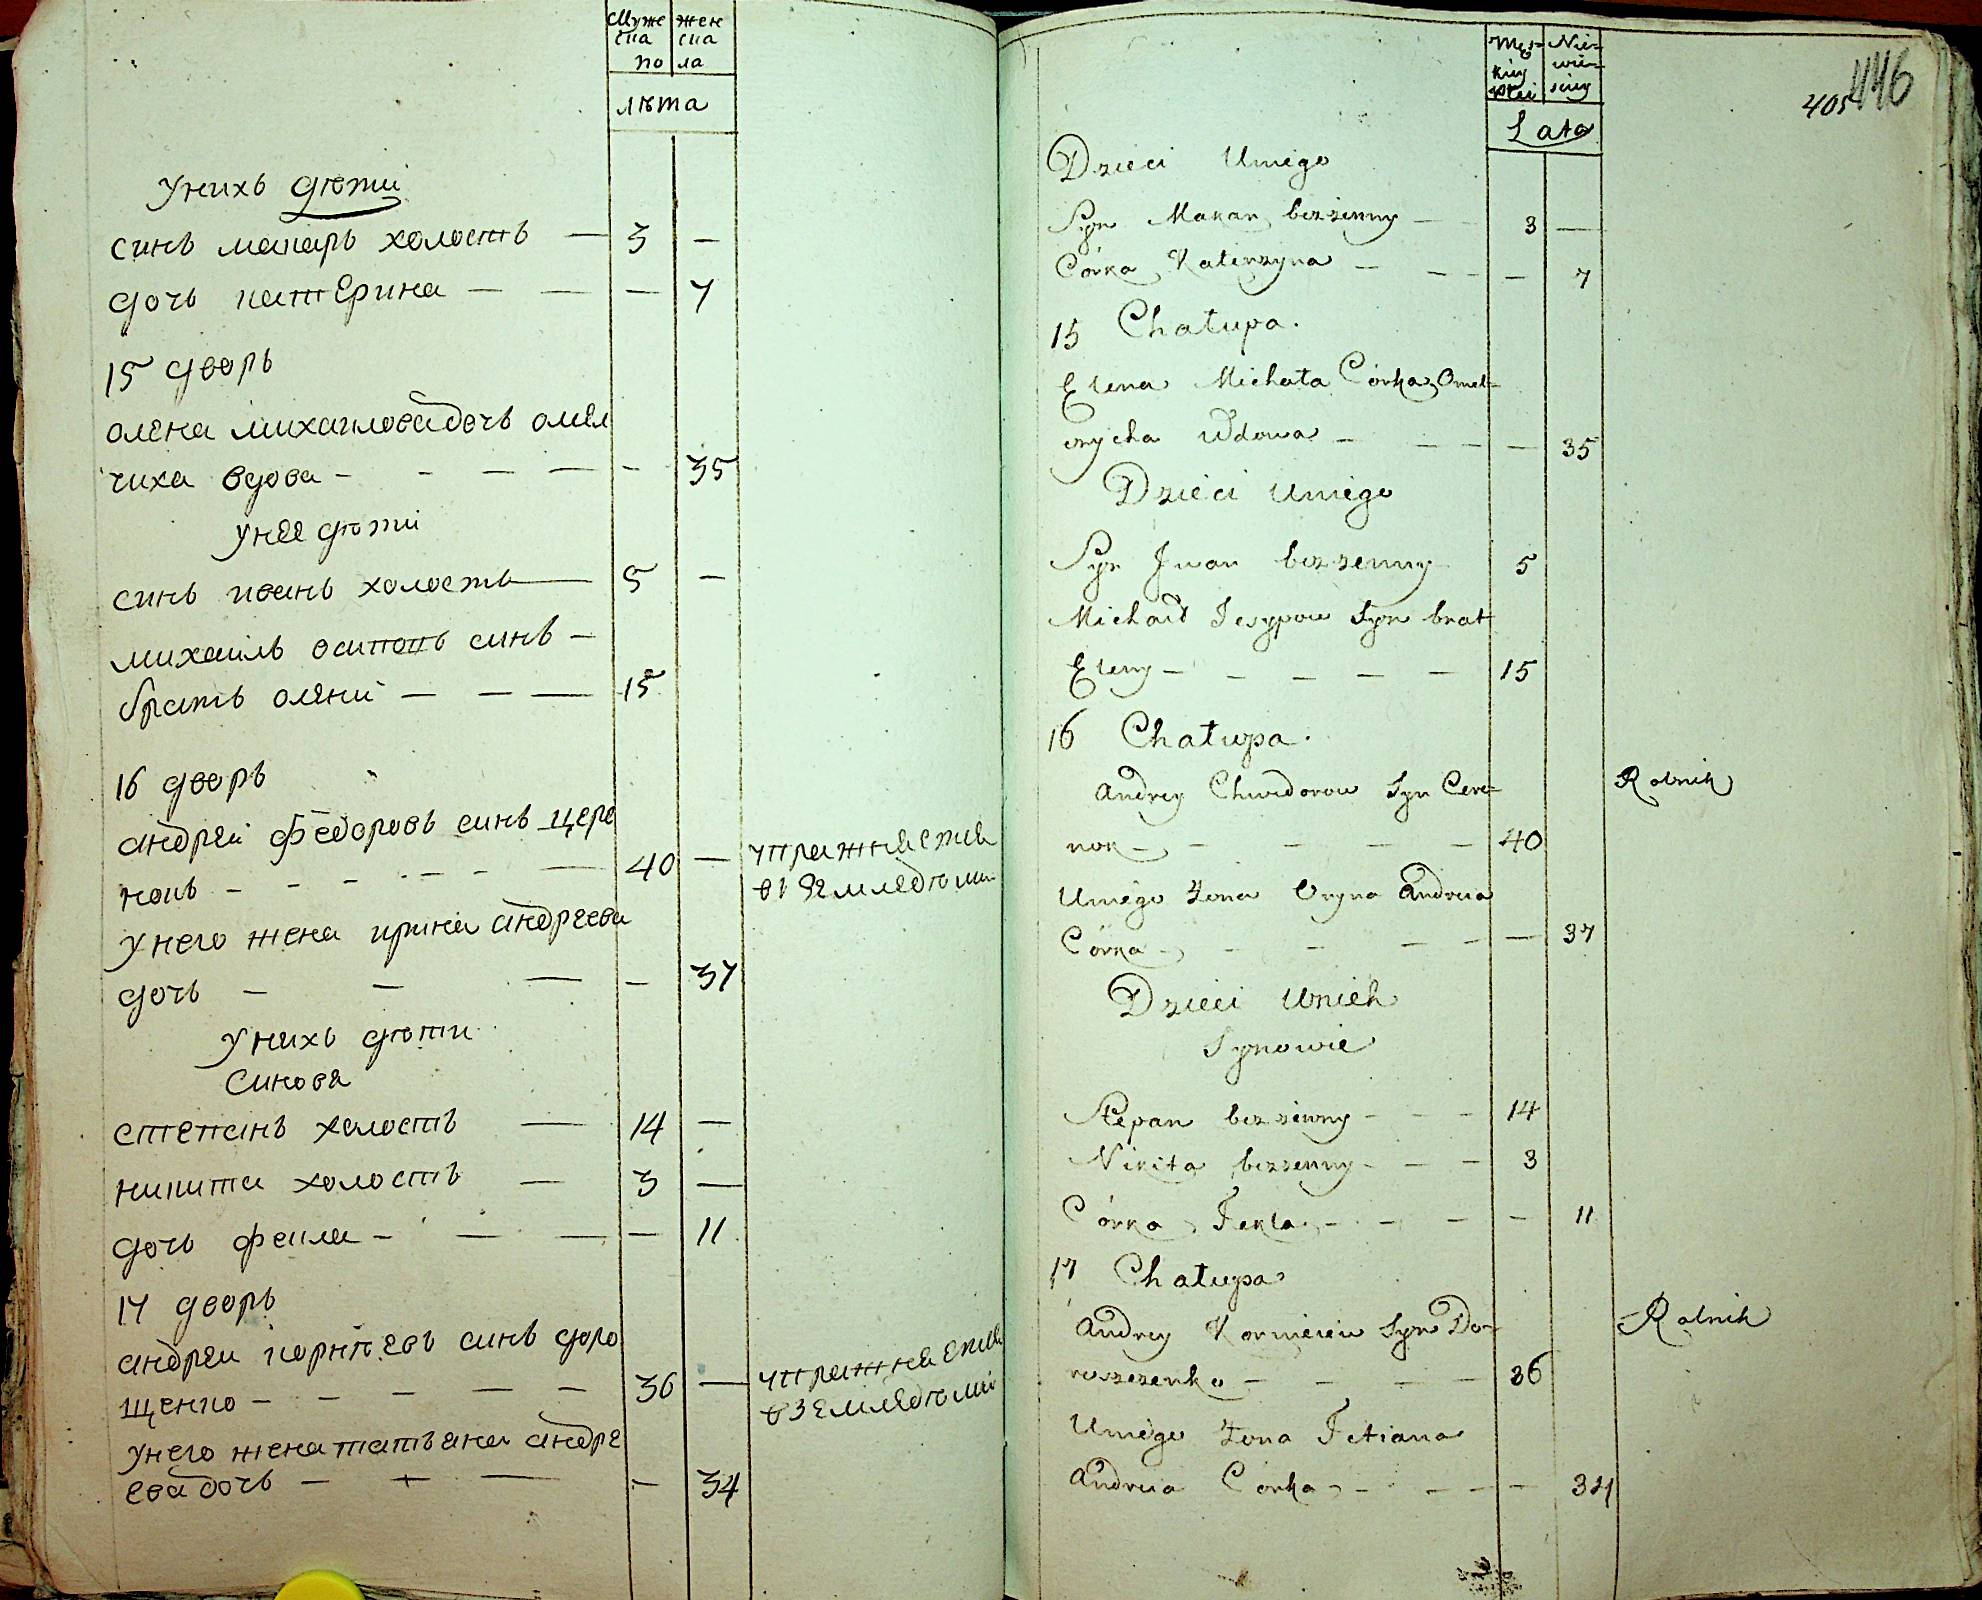 Муже жен
ска ска
по ла
лѣта
Унихъ дѣти
синъ макаръ холостъ — 3 —
дочь катерина — — — 7
15 дворъ
олена михаиловадочъ омел
чиха вдова — — — — — 35
Унее дѣти
синъ иванъ холостъ — 5 —
михаилъ осиповъ синъ —
братъ олени — — — 15
16 дворъ
андреи федоровъ синъ щере
нокъ — — — — — — 40 —
упражняется
въ земледѣли
Унего жена ирина андреева
дочь — — — — 37
Унихъ дѣти
Синовя
степанъ холостъ — 14 —
никита холостъ — 3 —
дочь фекла — — — — 11
17 дворъ
андреи корнѣевъ синъ доро
щенко — — — — — 36 —
упражняется
вземледѣли
унего жена татьяна андре
евадочь — — — — 34
Męz- Nie-
kiey wie-
płci sciey
Lata
405 446
Dzieci Uniego
Syn Makar bezżenny — — 3 —
Córka Katerzyna — — — — 7
15 Chałupa.
Elena Michała Córka Omel-
czycha wdowa — — — — 35
Dzieci Uniego
Syn Jwan bezżenny 5
Michaił Jesypow Syn brat
Eleny — — — — — 15
16 Chałupa.
Andrey Chwedorow Syn Cere- Rolnik
nok — — — — — 40
Uniego Żona Oryna Andreia
Córka — — — — — — 37
Dzieci Unich
Synowie
Stepan bezżenny — — — 14
Nikita bezżenny — — — 3
Córka Fekla — — — — 11
17 Chałupa
Andrey Kornieiew Syn Do- Rolnik
roszczenko — — — — 36
Uniego Żona Tetiana
Andreia Córka — — — — 34